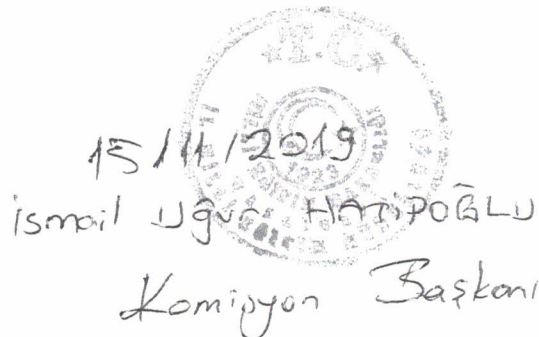 T.C.
15/11/2019
ismail Uğur HATİPOĞLU
Komisyon Başkanı